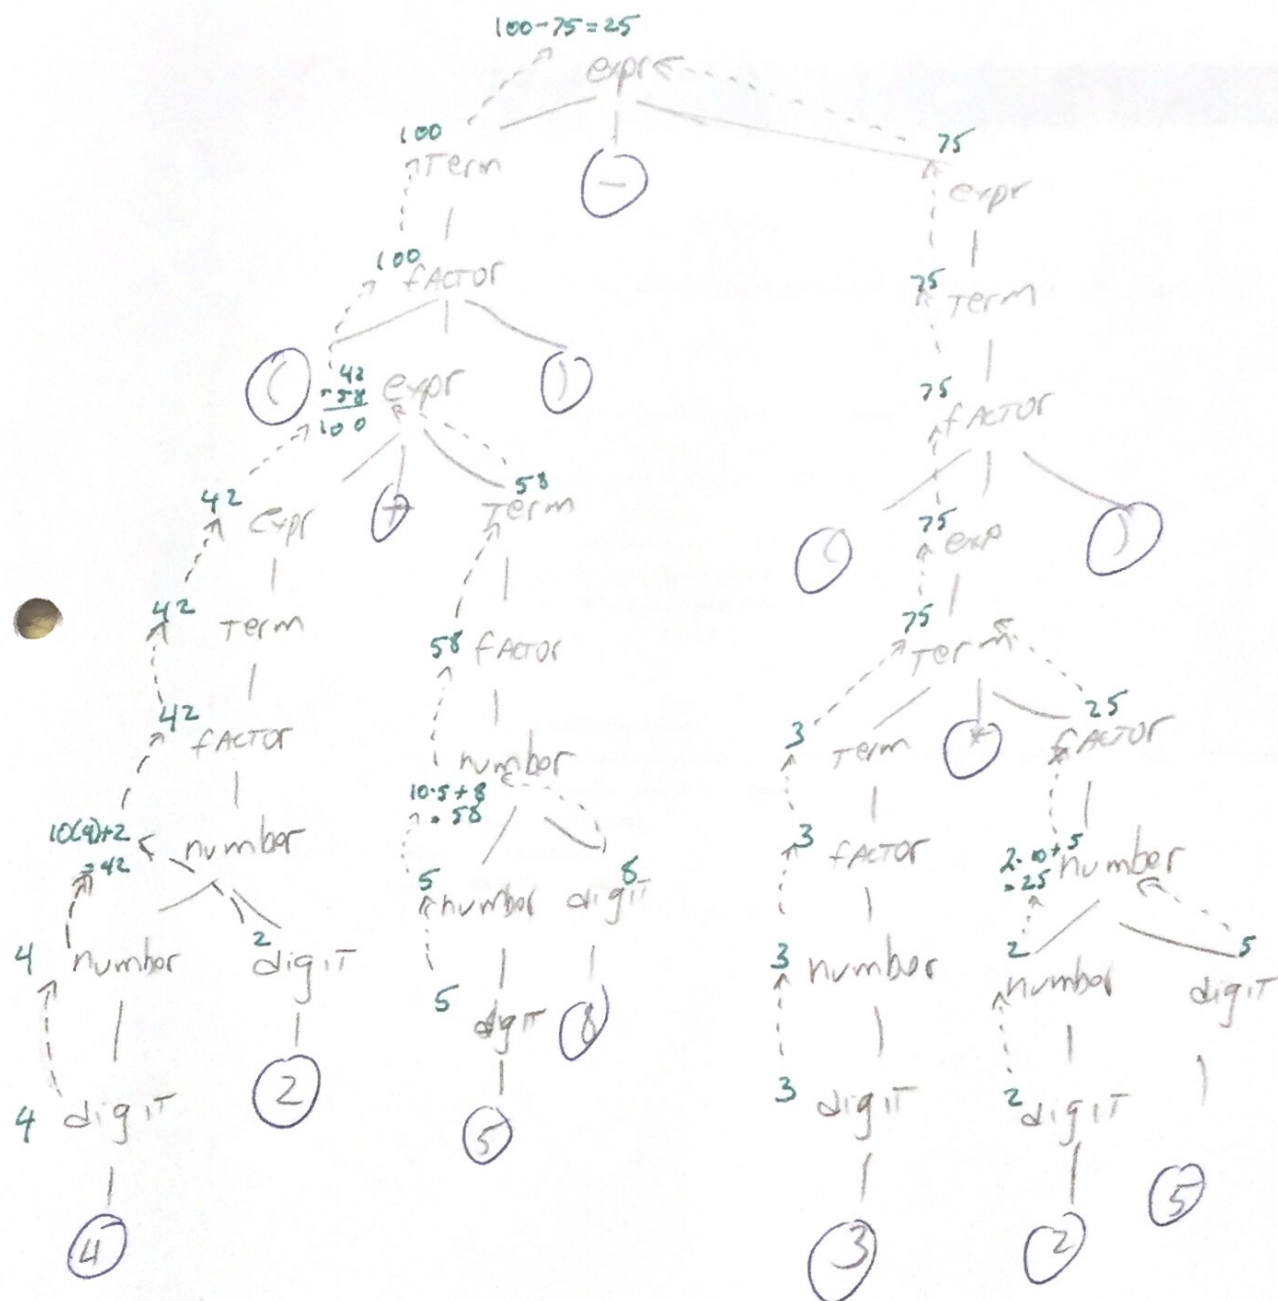 100-75=25
expr
100 75
Term - expr
100
factor 75 Term
( 42 expr )
+58
100
75
factor
42 expr + 58
Term
75
exp ( )
42 Term
58 factor
75
Term
42 factor
number
3 Term * 25
factor
10(4)+2
=42 number
10·5+8
=58
3 factor 2·10+5
=25 number
5 number 8 digit
4 number 2 digit
3 number 2 number 5 digit
5 digit 8
4 digit 2
5
3 digit 2 digit
4 3 2 5